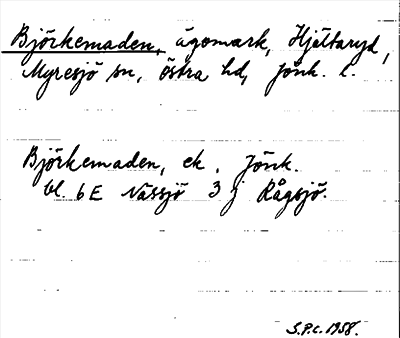 Björkemaden, ägomark, Hjältaryd,
Myresjö sn, östra hd, Jönk. l.
Björkemaden, ek. Jönk.
bl. 6 E Nässjö 3 j Rågsjö.
S.P.C. 1958.